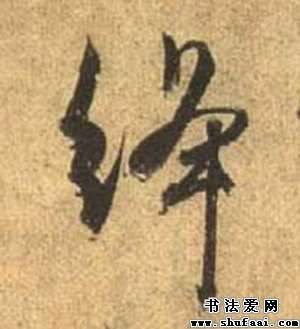 绛
书法爱网
www.shufaai.com